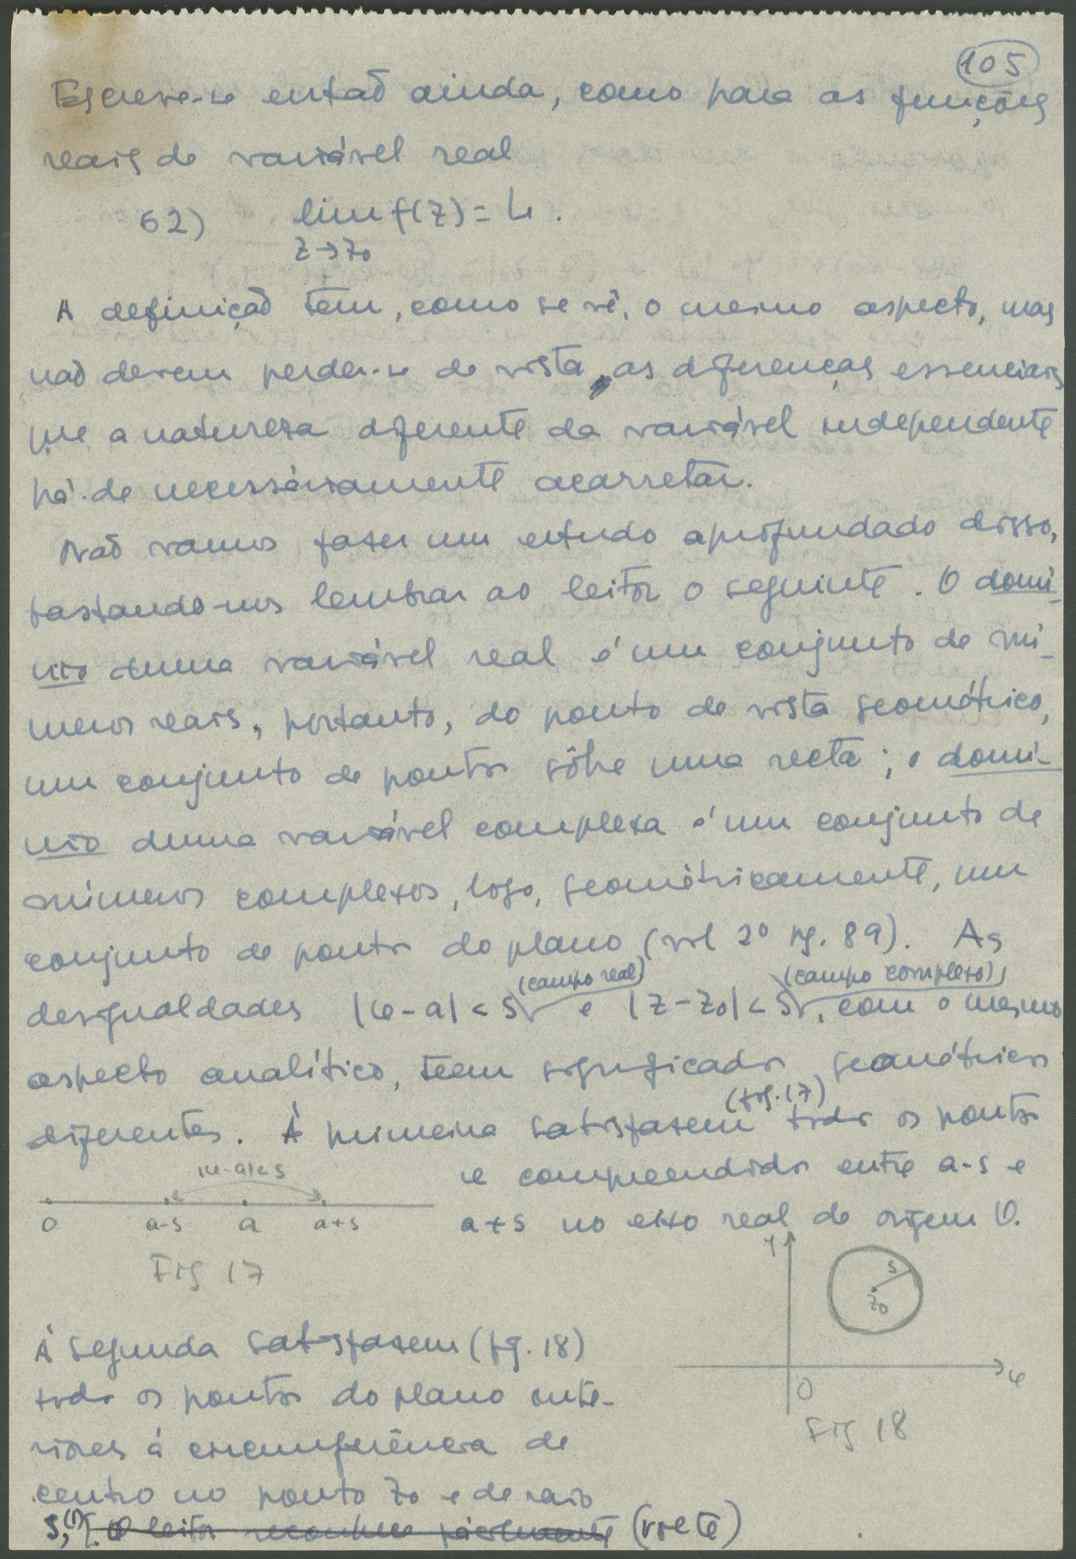 105
Escreve-se então ainda, como para as funções
reais de variável real
62) lim f(z) = L.
z→z₀
A definição tem, como se vê, o mesmo aspecto, mas
não devem perder-se de vista, as diferenças essenciais
que a natureza diferente da variável independente
há-de necessáriamente acarretar.
Não vamos fazer um estudo aprofundado disso,
bastando-nos lembrar ao leitor o seguinte. O domí-
nio duma variável real é um conjunto de nú-
meros reais, portanto, do ponto de vista geométrico,
um conjunto de pontos sôbre uma recta; o domí-
nio duma variável complexa é um conjunto de
números complexos, logo, geométricamente, um
conjunto de pontos do plano (vol 2º pg. 89). As
(campo real) (campo complexo),
desigualdades |x-a| < δ e |z-z₀| < δ, com o mesmo
aspecto analítico, teem significados geométricos
(fig. 17)
diferentes. À primeira satisfazem todos os pontos
x compreendidos entre a-δ e
a+δ no eixo real de origem O.
|x-a|<δ
O a-δ a a+δ
Fig 17
y
δ
z₀
O x
Fig 18
À segunda satisfazem (fg. 18)
todos os pontos do plano inte-
riores à circunferência de
centro no ponto z₀ e de raio
δ,(1)[. O leitor reconhece fàcilmente (volte)